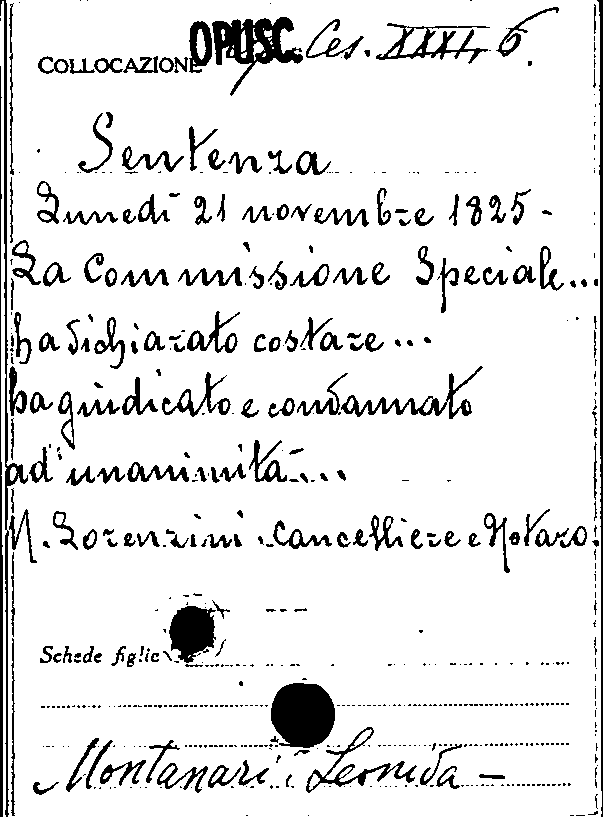 COLLOCAZIONE OPUSC. Ces. XXXI, 6.
Sentenza
Lunedì 21 novembre 1825-
La Commissione Speciale...
ha dichiarato costare...
ha giudicato e condannato
ad'unanimità-...
N. Lorenzini. Cancelliere e Notaro.
Schede figlie
Montanari Leonida -